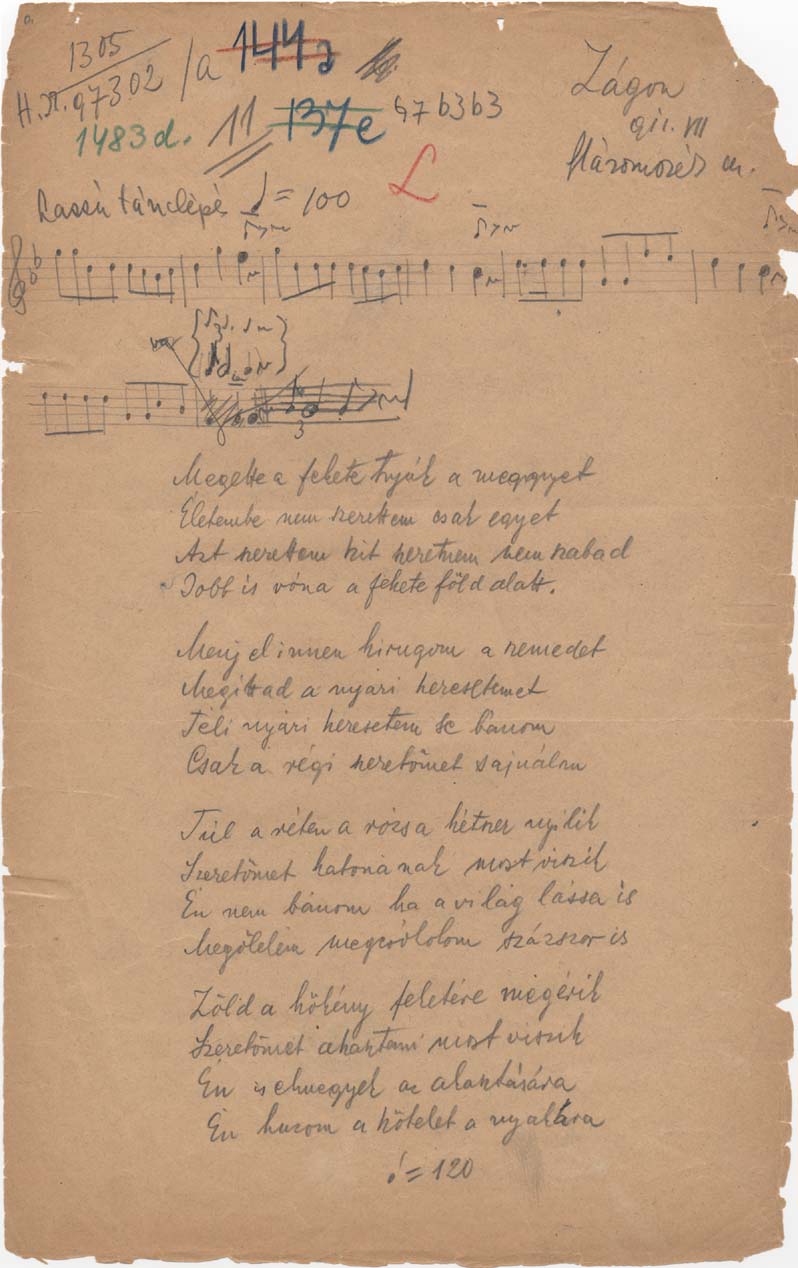 1305
H.Á. 97302 /a 144a
1483 d. 11 137e 57b3b3
L
Zágon
911. VII
Háromszék m.
Lassú tánclépés ♩= 100
var
3
Megette a fekete tyúk a meggyet
Életembe nem szerettem csak egyet
Azt szerettem kit szeretnem nem szabad
Jobb is vóna a fekete föld alatt.
Menj el innen kirugom a szemedet
Megittad a nyári keresetemet
Téli nyári keresetem se bánom
Csak a régi szeretőmet sajnálom
Túl a réten a rózsa hétszer nyílik
Szeretőmet katonának most viszik
Én nem bánom ha a világ lássa is
Megölelem megcsóklolom százszor is
Zöld a kökény feketére megérik
Szeretőmet akasztani most viszik
Én is elmegyek az akasztására
Én huzom a kötelet a nyakára
♩= 120